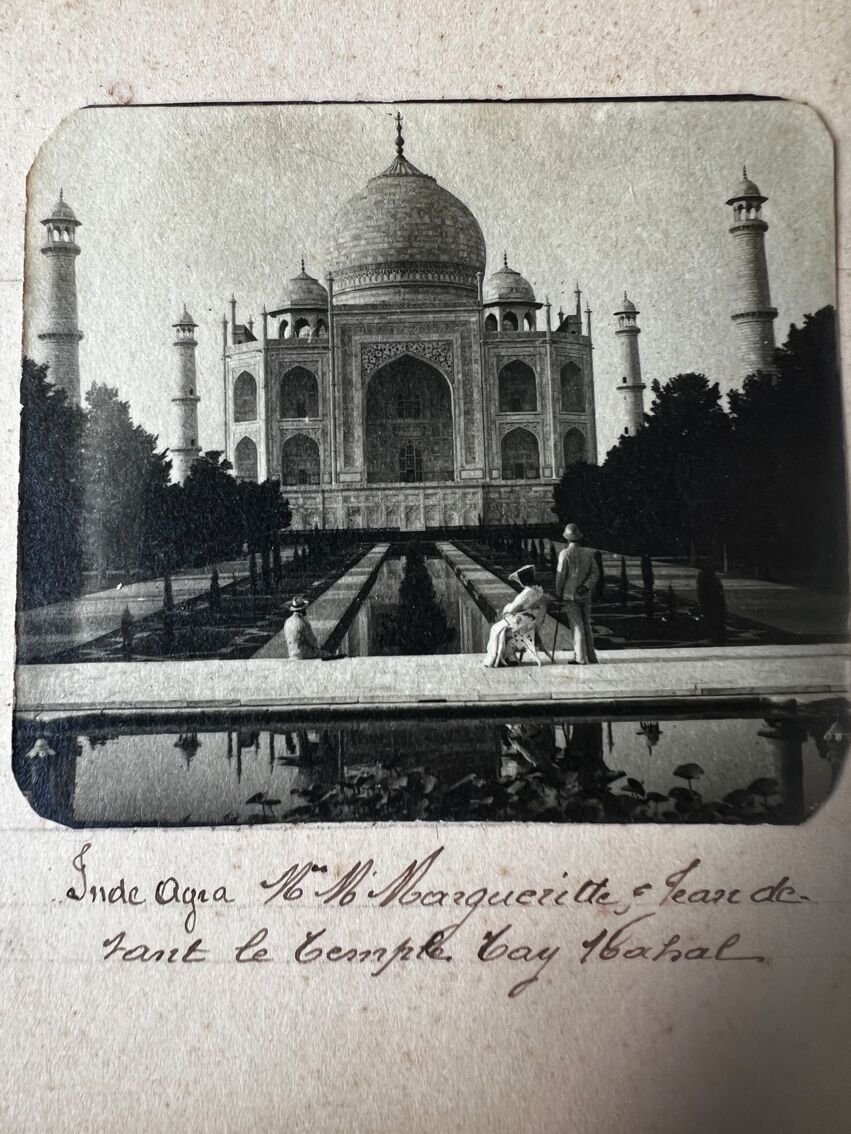 Inde Agra Mme M Margueritte, & Jean de-
vant le temple Tay Mahal